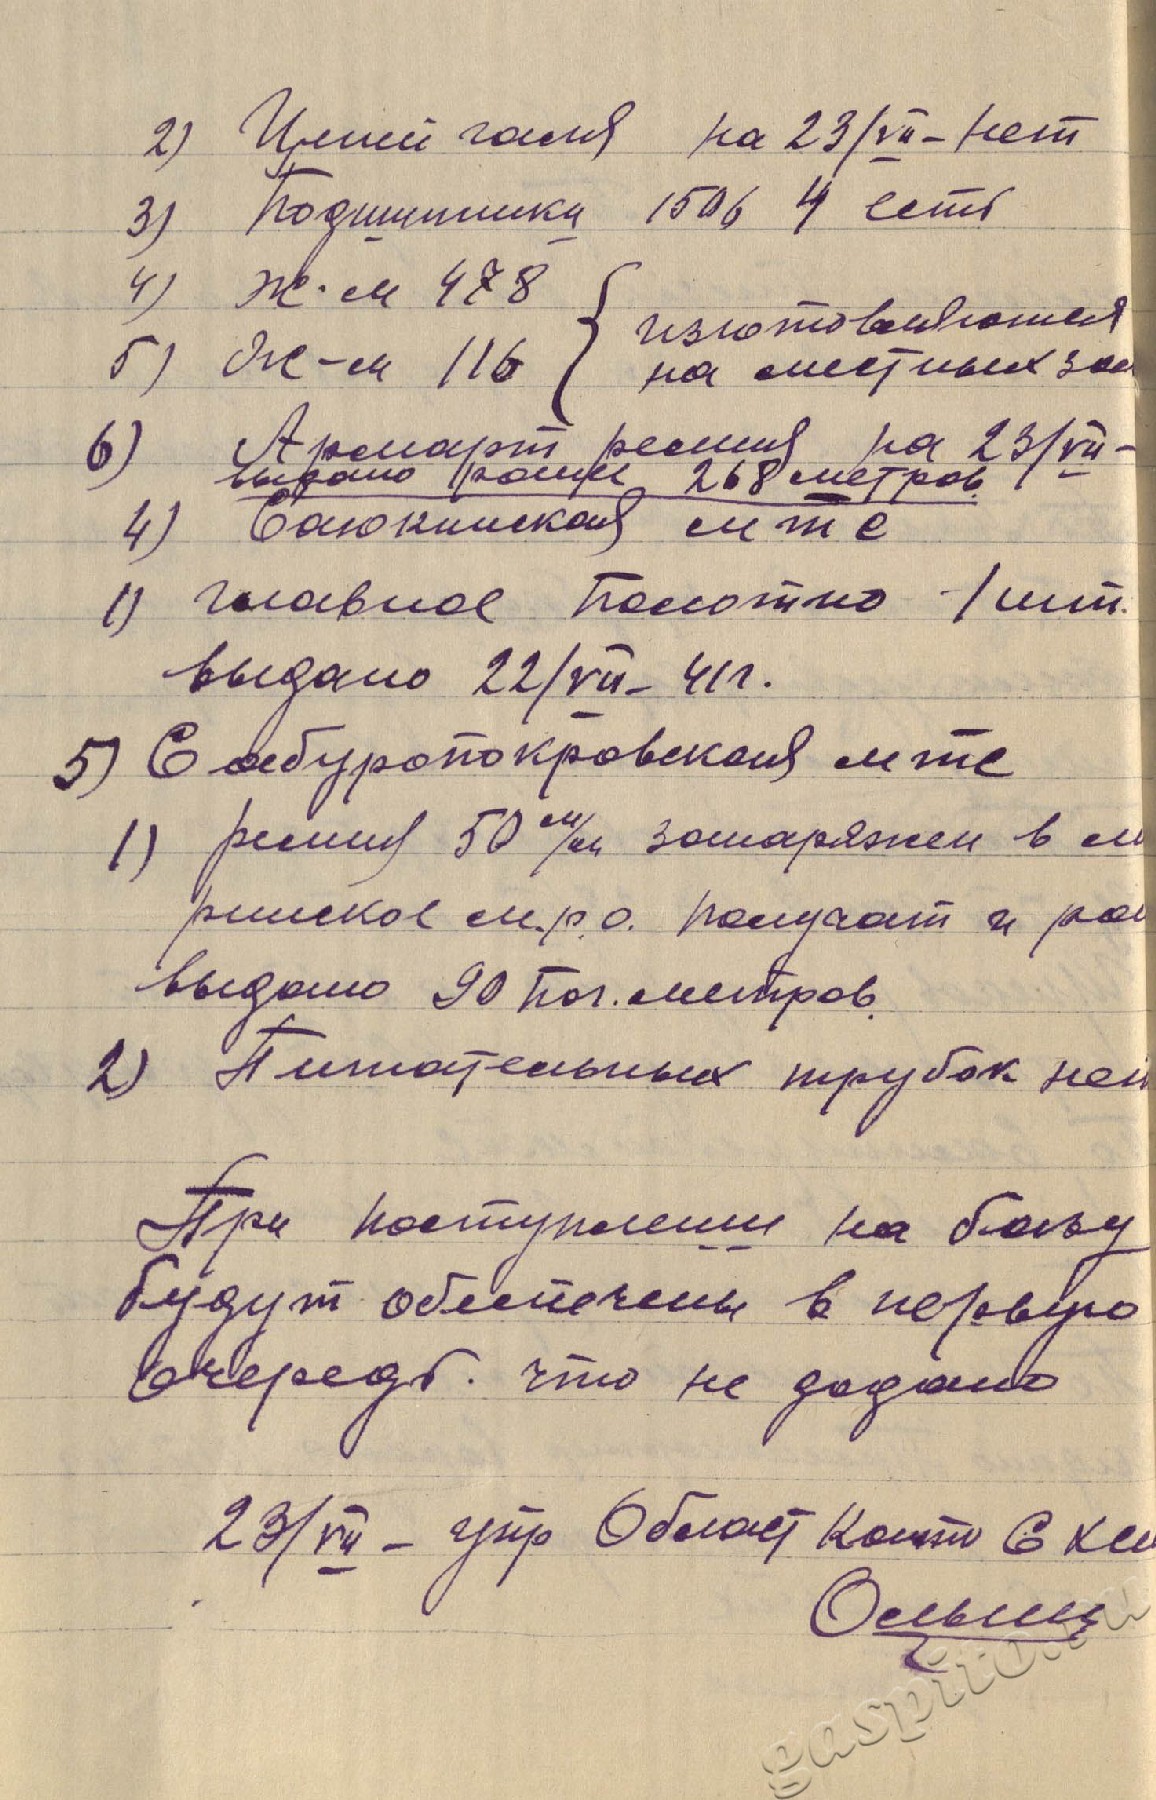 2) Цепей галя на 23/VII – нет
3) Подшипники 1506 4 есть
4) Ж-м 478
5) Ж-м 116 { изготовляются
на местных зав
6) Армарт ремня на 23/VII –
выдано 268 метров.
4) Саюкинская мтс
1) главное полотно – 1 шт.
выдано 22/VII – 41 г.
5) Сабуропокровская мтс
1) ремня 50 м/м занаряжен в
ринское м.р.о. получат и
выдано 90 пог. метров.
2) Питательных трубок нет
При поступлении на базу
будут обеспечены в первую
очередь. что не додано
23/VII – упр Област конто С
gaspito.ru